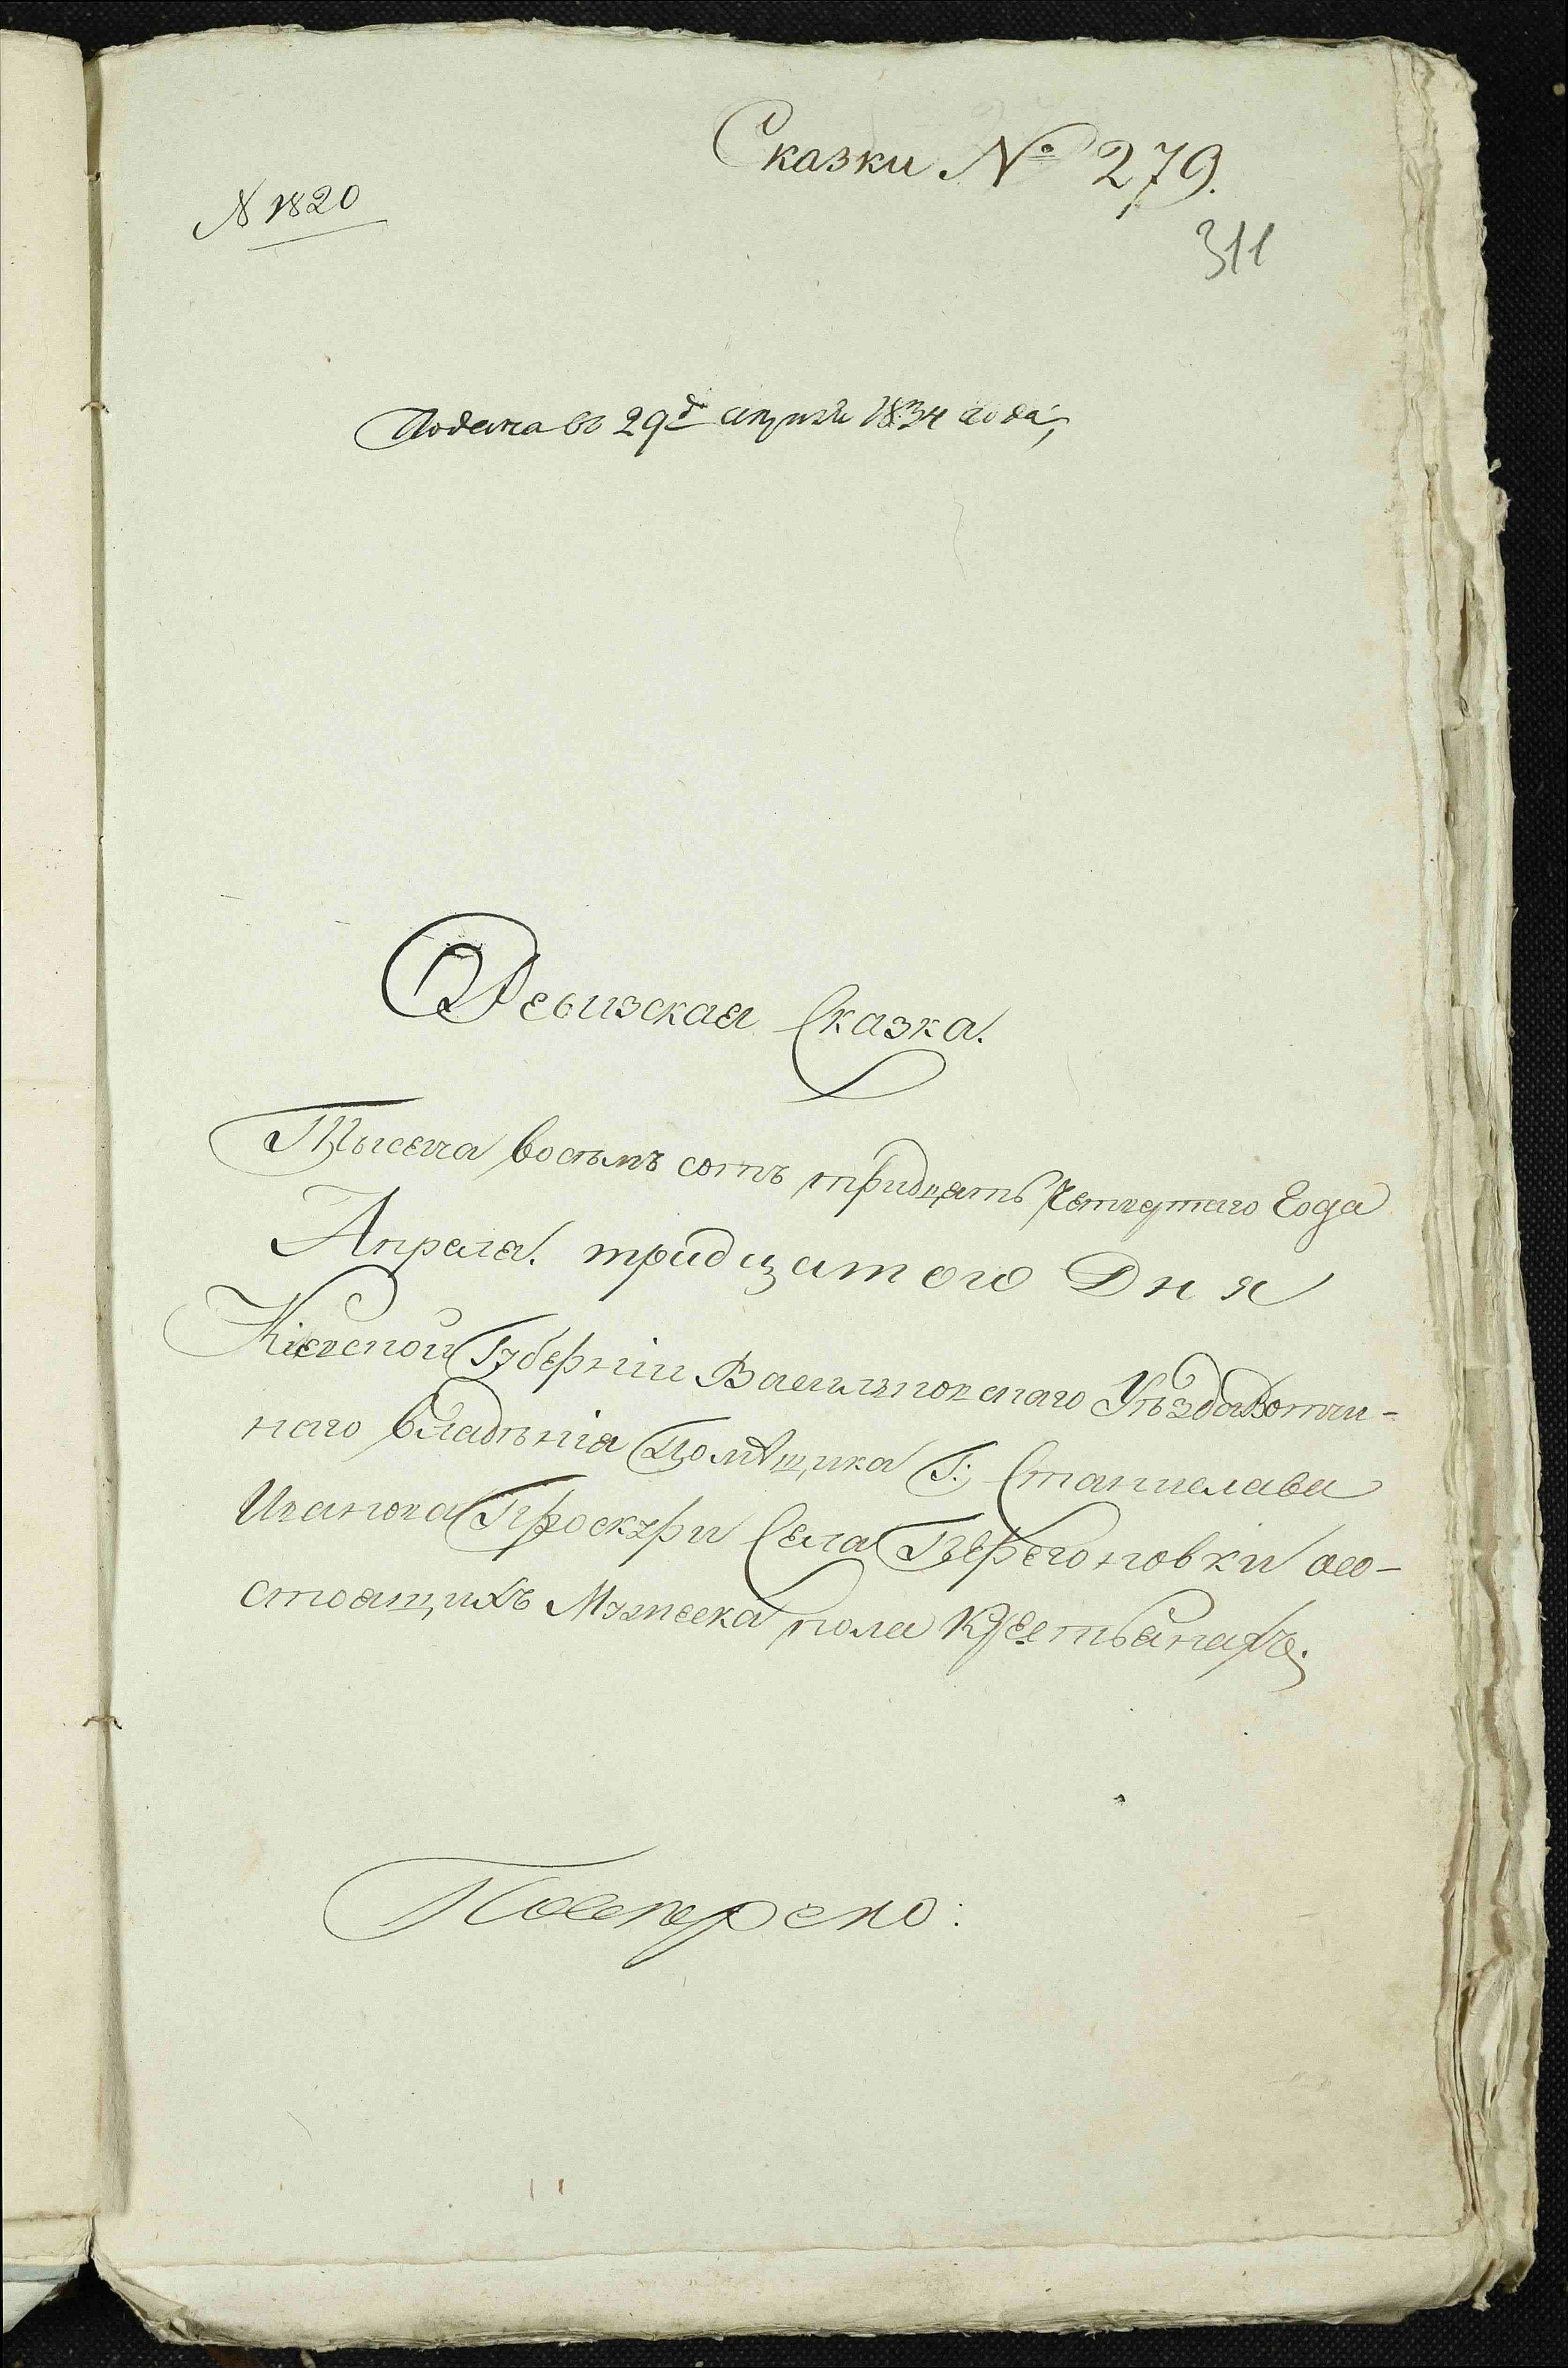 Сказки № 279.
№ 1820
311
Подана въ 29 д апреля 1834 года,
Ревизская Сказка.
Тысеча восемъ сотъ тридцять Четвертаго Года
Апреля. тридцатого Дня
Кіевской Губерніи Васильковскаго Уѣзда Вотчи-
наго Владѣнія Помѣщика Г: Станислава
Иванова Проскури Села Перегоновки о со-
стоящихъ Мужеска пола Крестьянахъ.